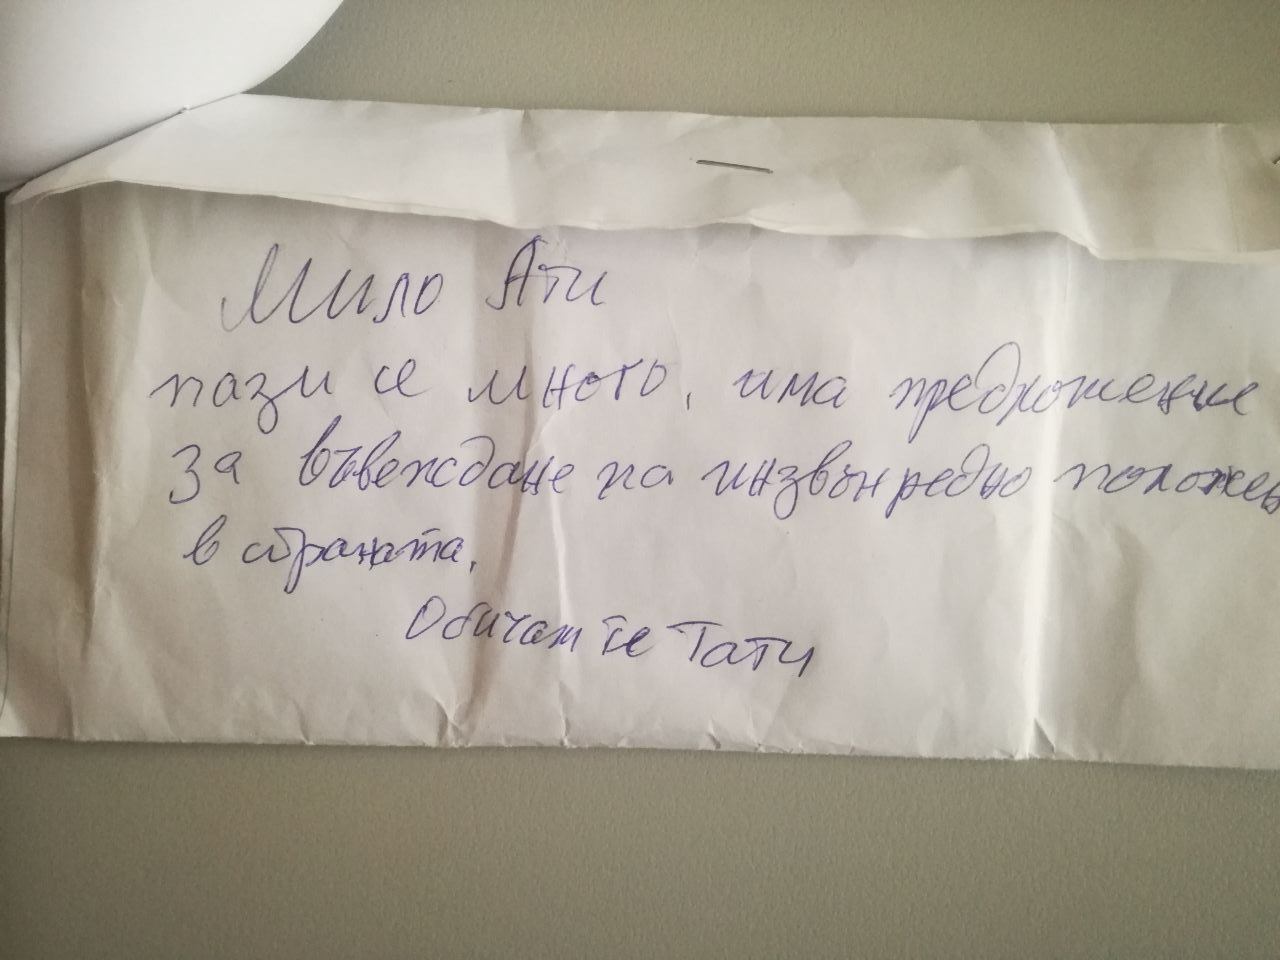 Мило Ати
пази се много, има предложение
за въвеждане на инзвънредно положен
в страната,
Обичам те Тати